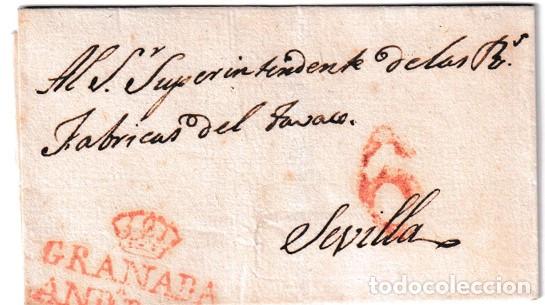 Al S.r Superintendente de las R.s
Fabricas del tavaco.
6
Sevilla
GRANADA
todocoleccion.net